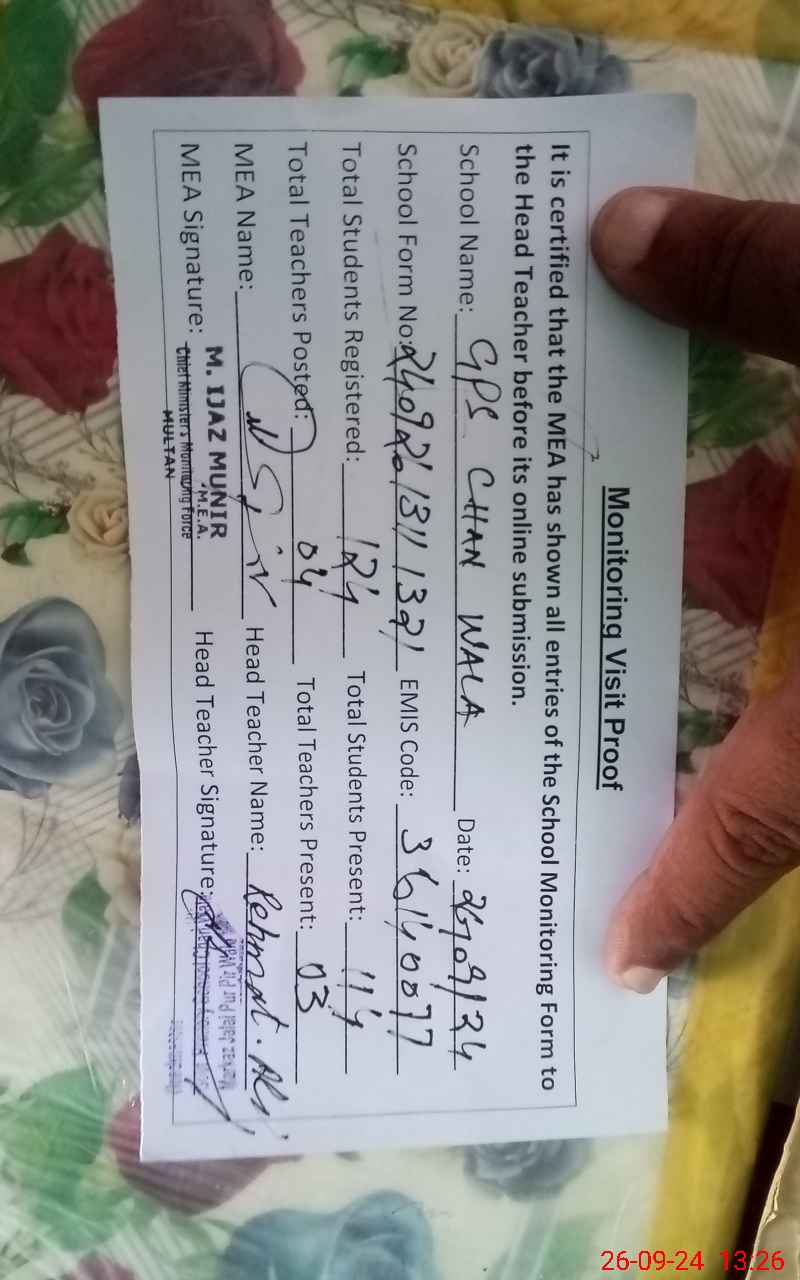 Monitoring Visit Proof
It is certified that the MEA has shown all entries of the School Monitoring Form to
the Head Teacher before its online submission.
School Name: GPS CHAN WALA Date: 26/09/24
School Form No: 2409261311321 EMIS Code: 36140077
Total Students Registered: 124 Total Students Present: 114
Total Teachers Posted: 04 Total Teachers Present: 03
MEA Name: Head Teacher Name: Rehmat Ali
MEA Signature: Head Teacher Signature:
M. IJAZ MUNIR
M.E.A.
Chief Minister's Monitoring Force
MULTAN
26-09-24 13:26